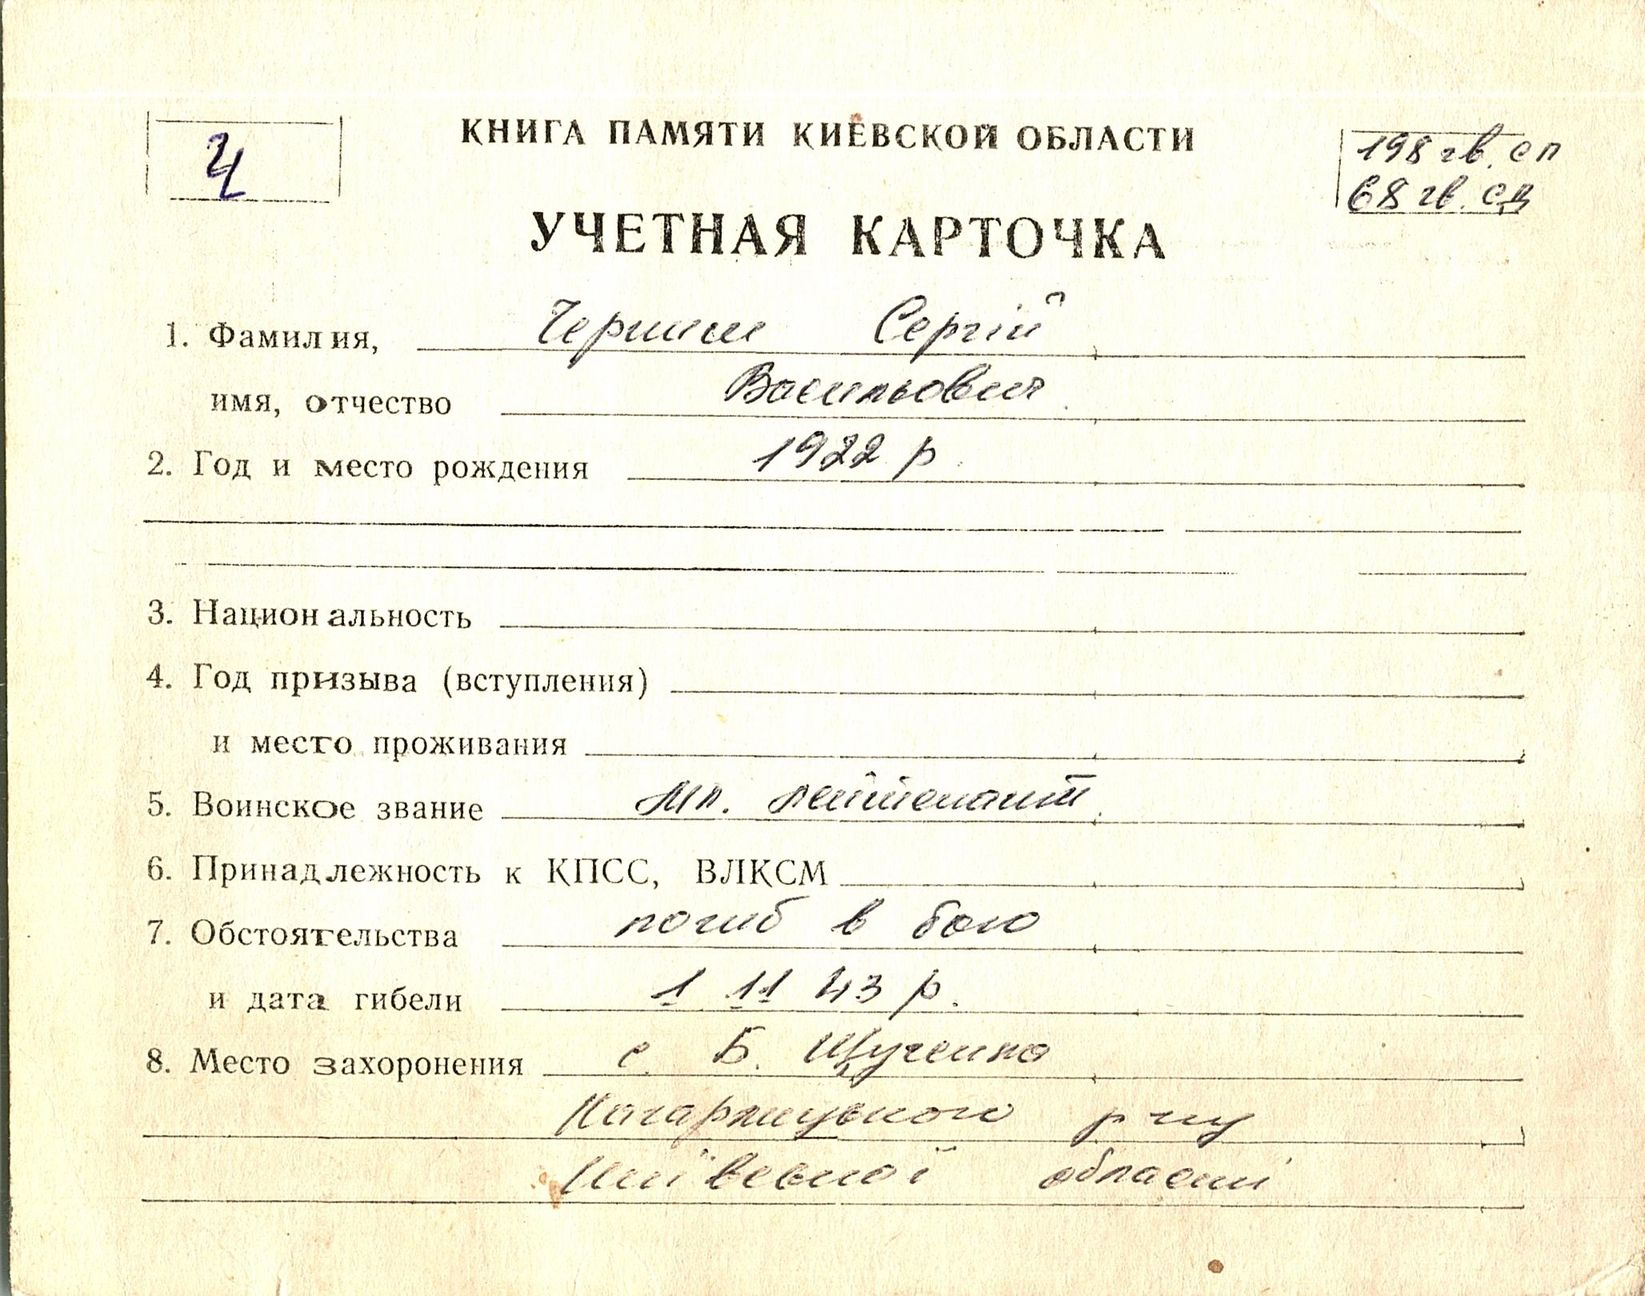 КНИГА ПАМЯТИ КИЕВСКОЙ ОБЛАСТИ
Ч
198 гв. сп
68 гв. сд
УЧЕТНАЯ КАРТОЧКА
1. Фамилия, Сергій
имя, отчество Васильович
2. Год и место рождения 1922 р.
3. Национальность
4. Год призыва (вступления)
и место проживания
5. Воинское звание Мл. лейтенант.
6. Принадлежность к КПСС, ВЛКСМ
7. Обстоятельства погиб в бою
и дата гибели 1 11 43 р.
8. Место захоронения с. Б. Щученка
Кагарлицького р-ну
Київської області